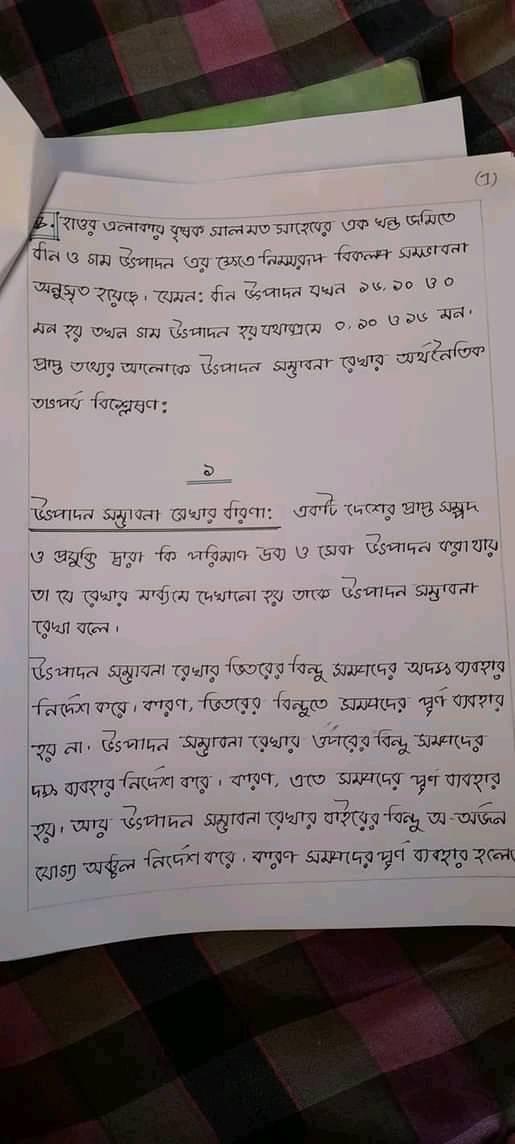 (1)
হাওর এলাকার কৃষক সালমত সাহেবের এক খন্ড জমিতে
ধান ও গম উৎপাদন এর ক্ষেত্রে নিম্নরূপ বিকল্প সম্ভাবনা
অনুসৃত হয়েছে। যেমন: ধান উৎপাদন যখন ১৬, ১০ ও ০
মন হয় তখন গম উৎপাদন হয় যথাক্রমে ০, ১০ ও ১৬ মন।
প্রাপ্ত তথ্যের আলোকে উৎপাদন সম্ভাবনা রেখার অর্থনৈতিক
তাৎপর্য বিশ্লেষণ:
১
উৎপাদন সম্ভাবনা রেখার ধারণা: একটি দেশের প্রাপ্ত সম্পদ
ও প্রযুক্তি দ্বারা কি পরিমাণ দ্রব্য ও সেবা উৎপাদন করা যায়
তা যে রেখার মাধ্যমে দেখানো হয় তাকে উৎপাদন সম্ভাবনা
রেখা বলে।
উৎপাদন সম্ভাবনা রেখার ভিতরের বিন্দু সম্পদের অদক্ষ ব্যবহার
নির্দেশ করে। কারণ, ভিতরের বিন্দুতে সম্পদের পূর্ণ ব্যবহার
হয় না। উৎপাদন সম্ভাবনা রেখার উপরের বিন্দু সম্পদের
দক্ষ ব্যবহার নির্দেশ করে। কারণ, এতে সম্পদের পূর্ণ ব্যবহার
হয়। আর উৎপাদন সম্ভাবনা রেখার বাইরের বিন্দু অ-অর্জন
যোগ্য অঞ্চল নির্দেশ করে। কারণ সম্পদের পূর্ণ ব্যবহার হলে